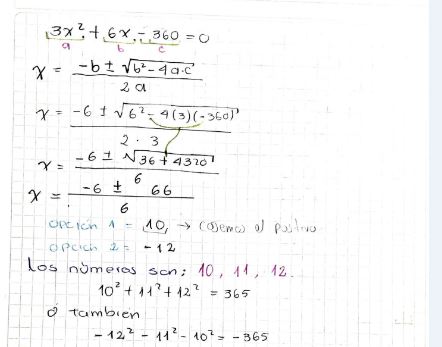 3x² + 6x - 360 = 0
a b c
x = -b ± √b² - 4a·c / 2a
x = -6 ± √6² - 4(3)(-360) / 2 · 3
x = -6 ± √36 + 4320 / 6
x = -6 ± 66 / 6
opción 1 = 10, → cogemos el positivo
opción 2 = -12
Los números son: 10, 11, 12.
10² + 11² + 12² = 365
ó tambien
-12² - 11² - 10² = -365